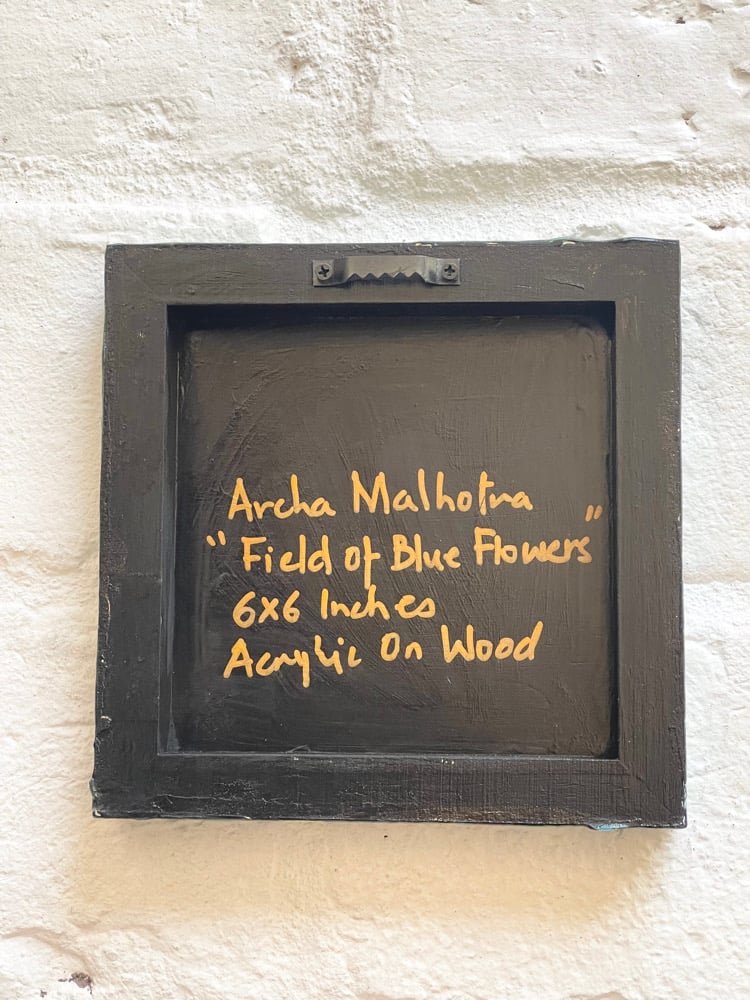 Archa Malhotra
"Field of Blue Flowers"
6x6 Inches
Acrylic On Wood